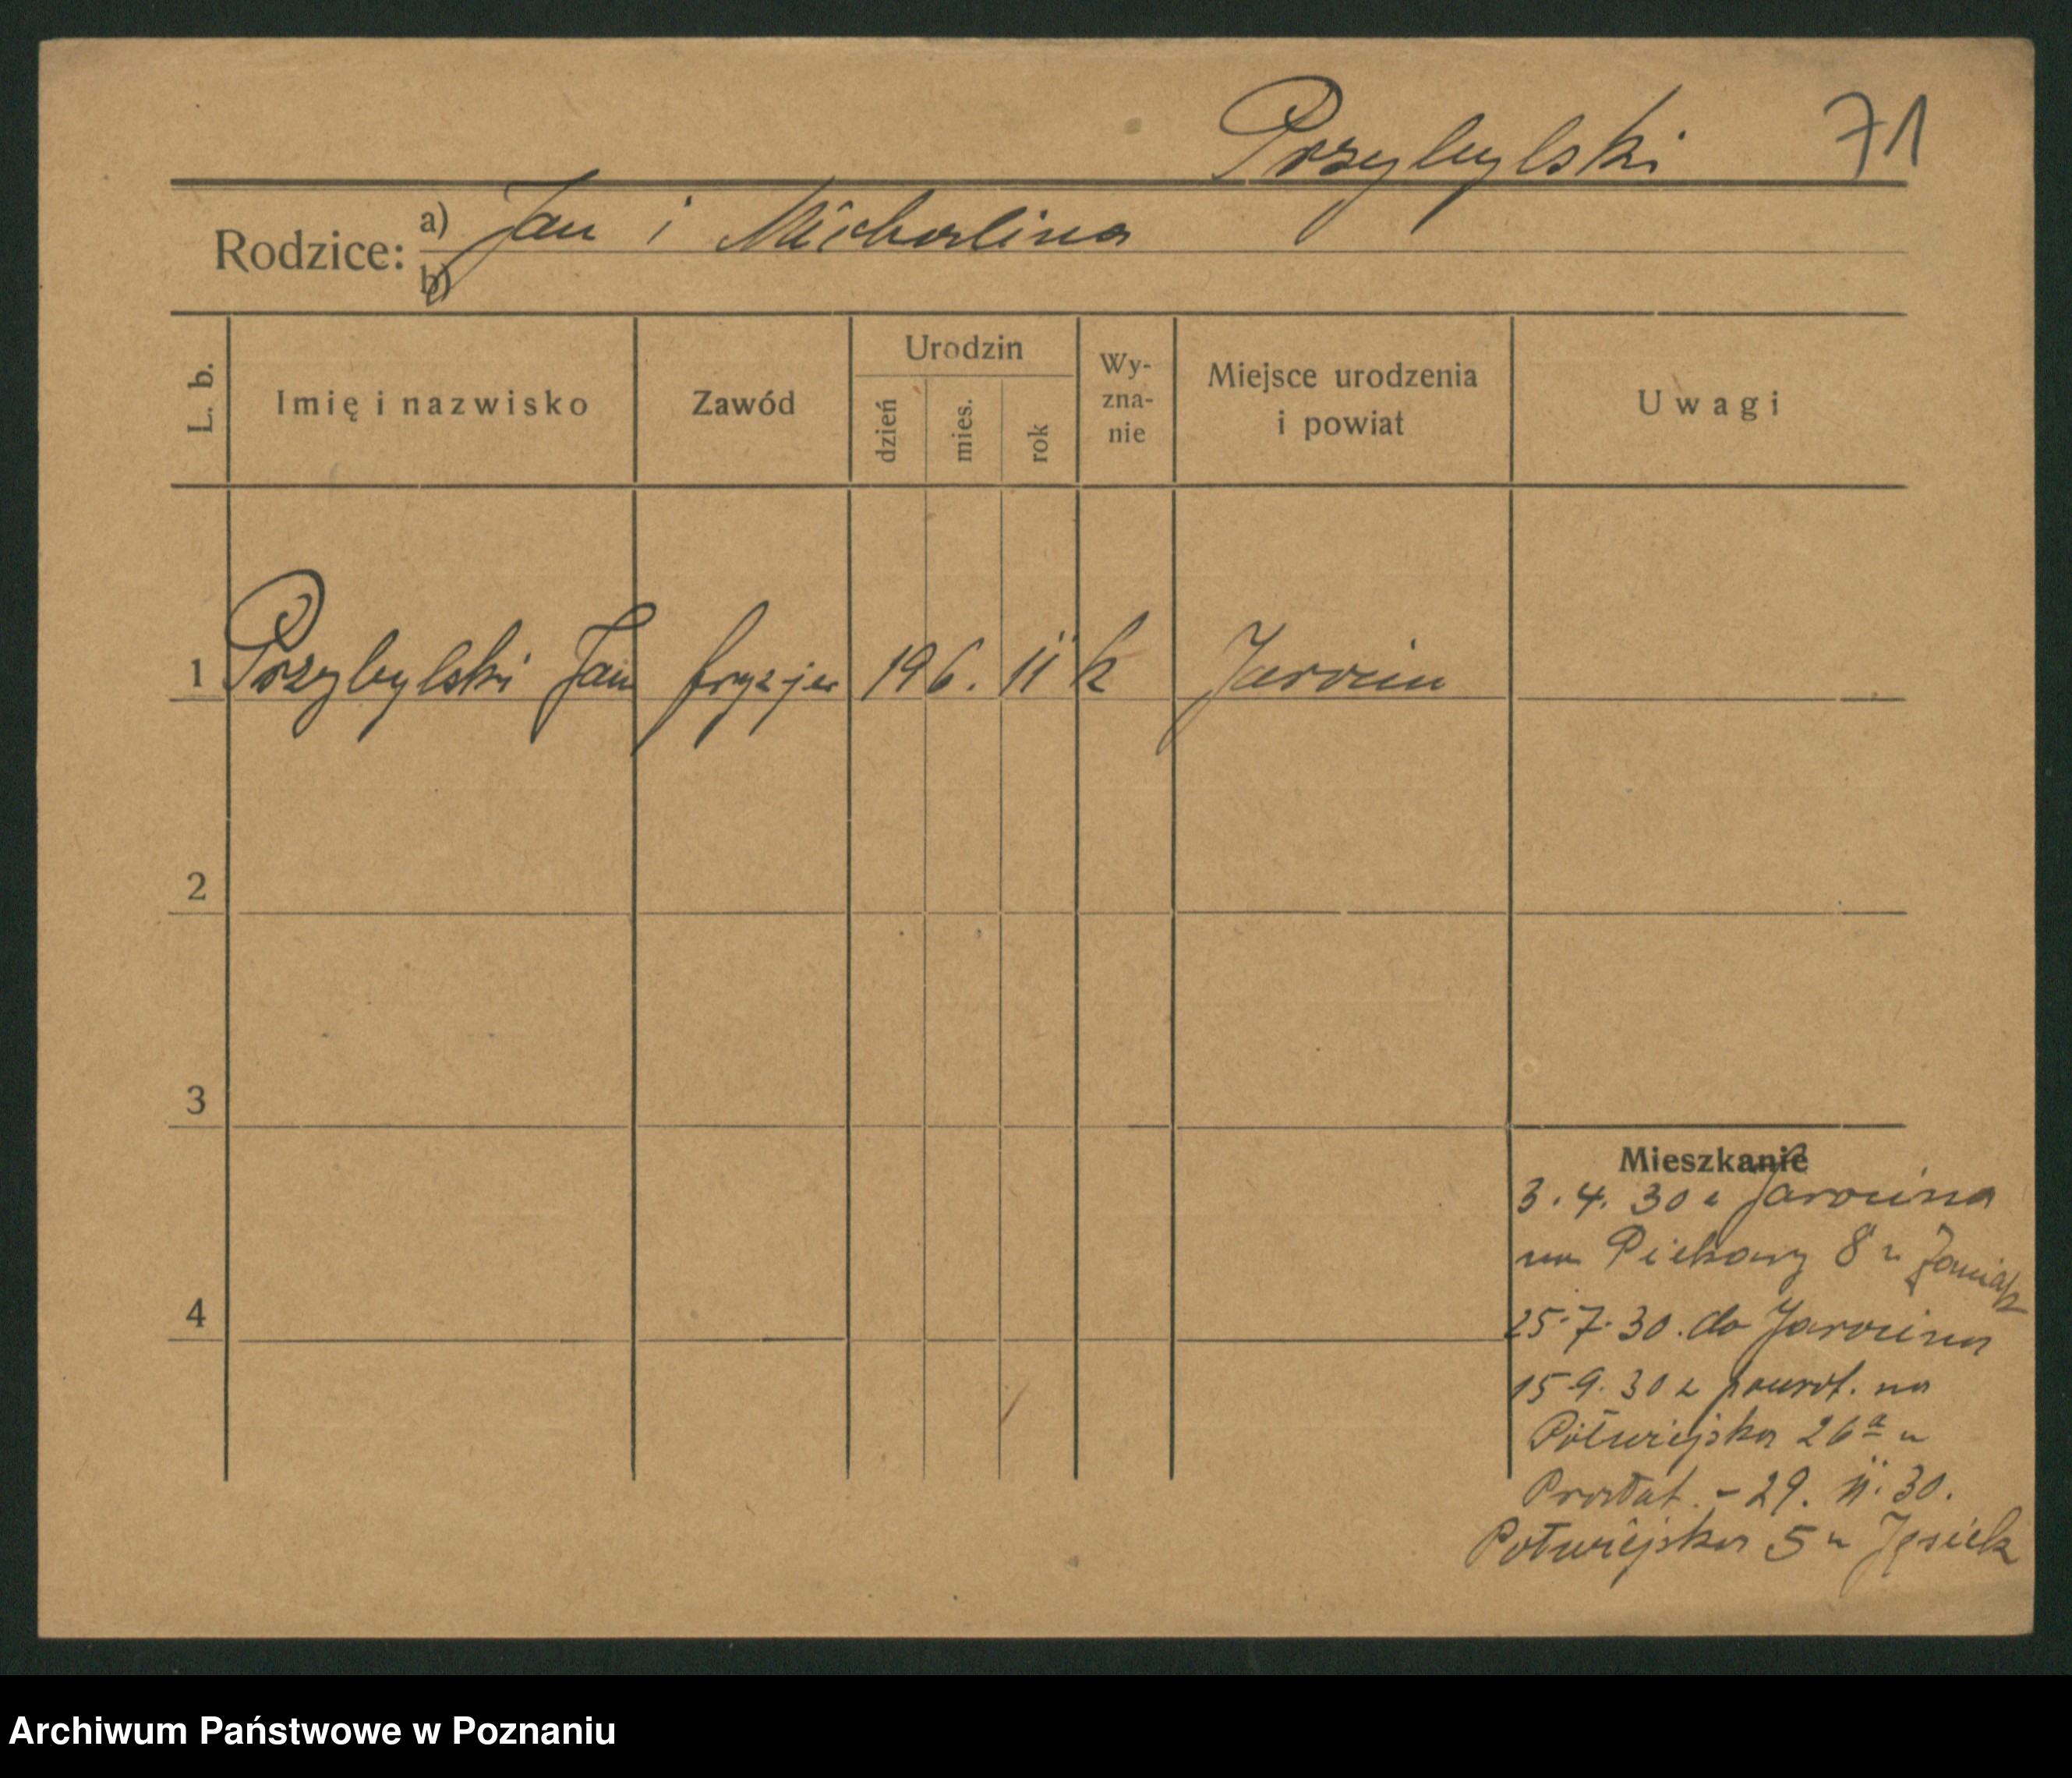 Przybylski 71
Rodzice: a) Jan i Michalina
b)
L. b.
Imię i nazwisko
Zawód
Urodzin
dzień
mies.
rok
Wy-
zna-
nie
Miejsce urodzenia
i powiat
Uwagi
1 Przybylski Jan fryzjer 19 6. 11 k Jarocin
2
3
4
Mieszkanie
3. 4. 30 z Jarocina
na Piekary 8 u
25. 7. 30. do Jarocina
15 9. 30 z powrot. na
Półwiejska 26a u
29. 11. 30.
Półwiejska 5 u
Archiwum Państwowe w Poznaniu